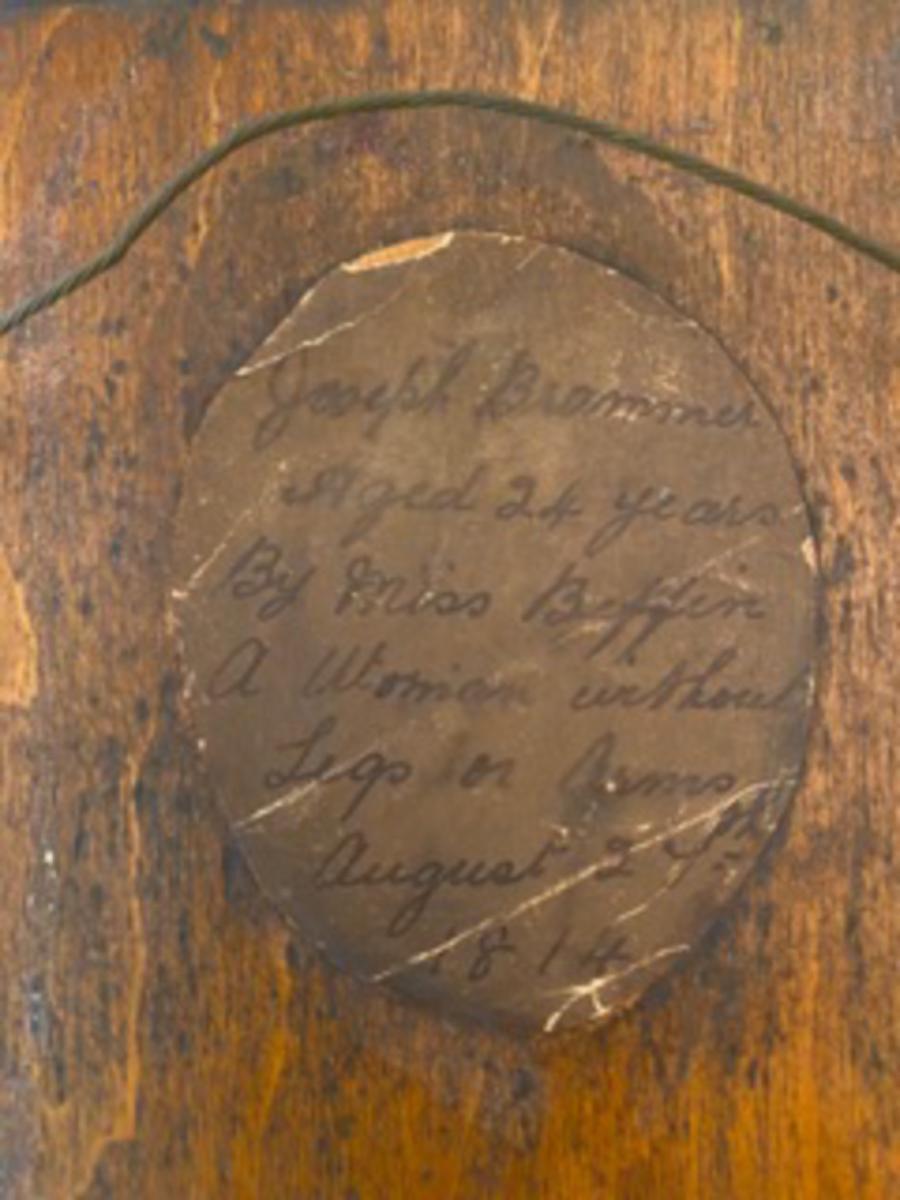 Joseph Brammer
Aged 24 years
By Miss Beffin
A Woman without
Legs or Arms
August 27th
1814